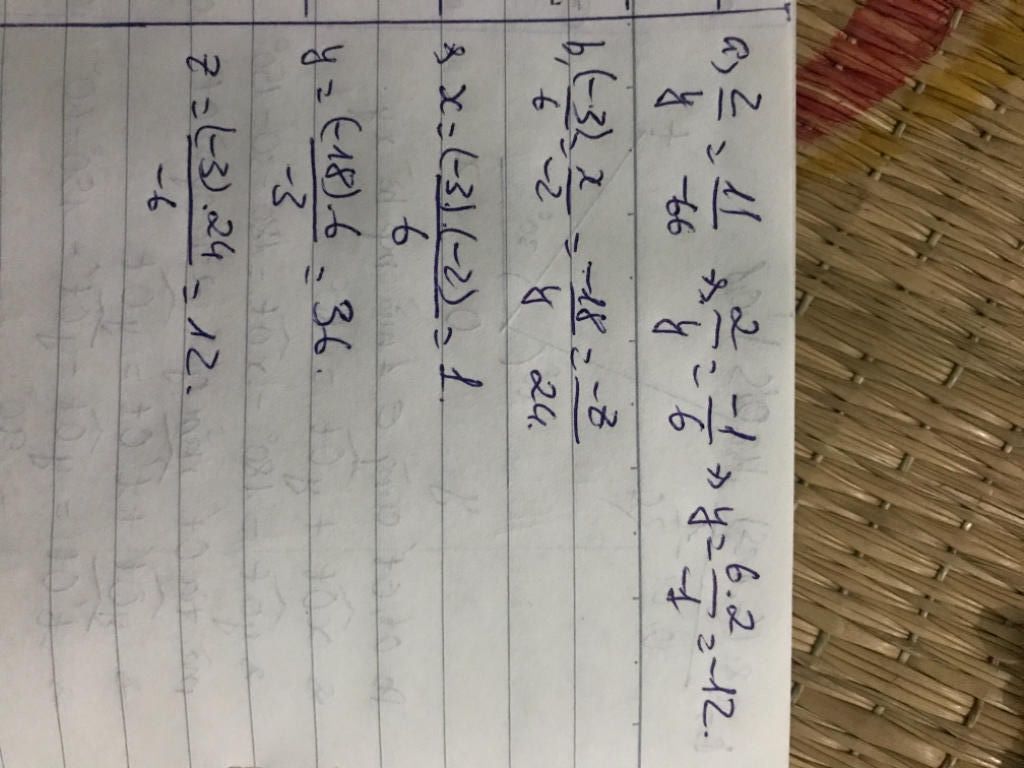 a, 2/y = 11/-66 => 2/y = -1/6 => y = 6.2/-1 = -12.
b, (-3)/6 = x/-2 = -18/y = -z/24.
=> x = (-3).(-2)/6 = 1.
y = (-18).6/-3 = 36.
z = (-3).24/-6 = 12.